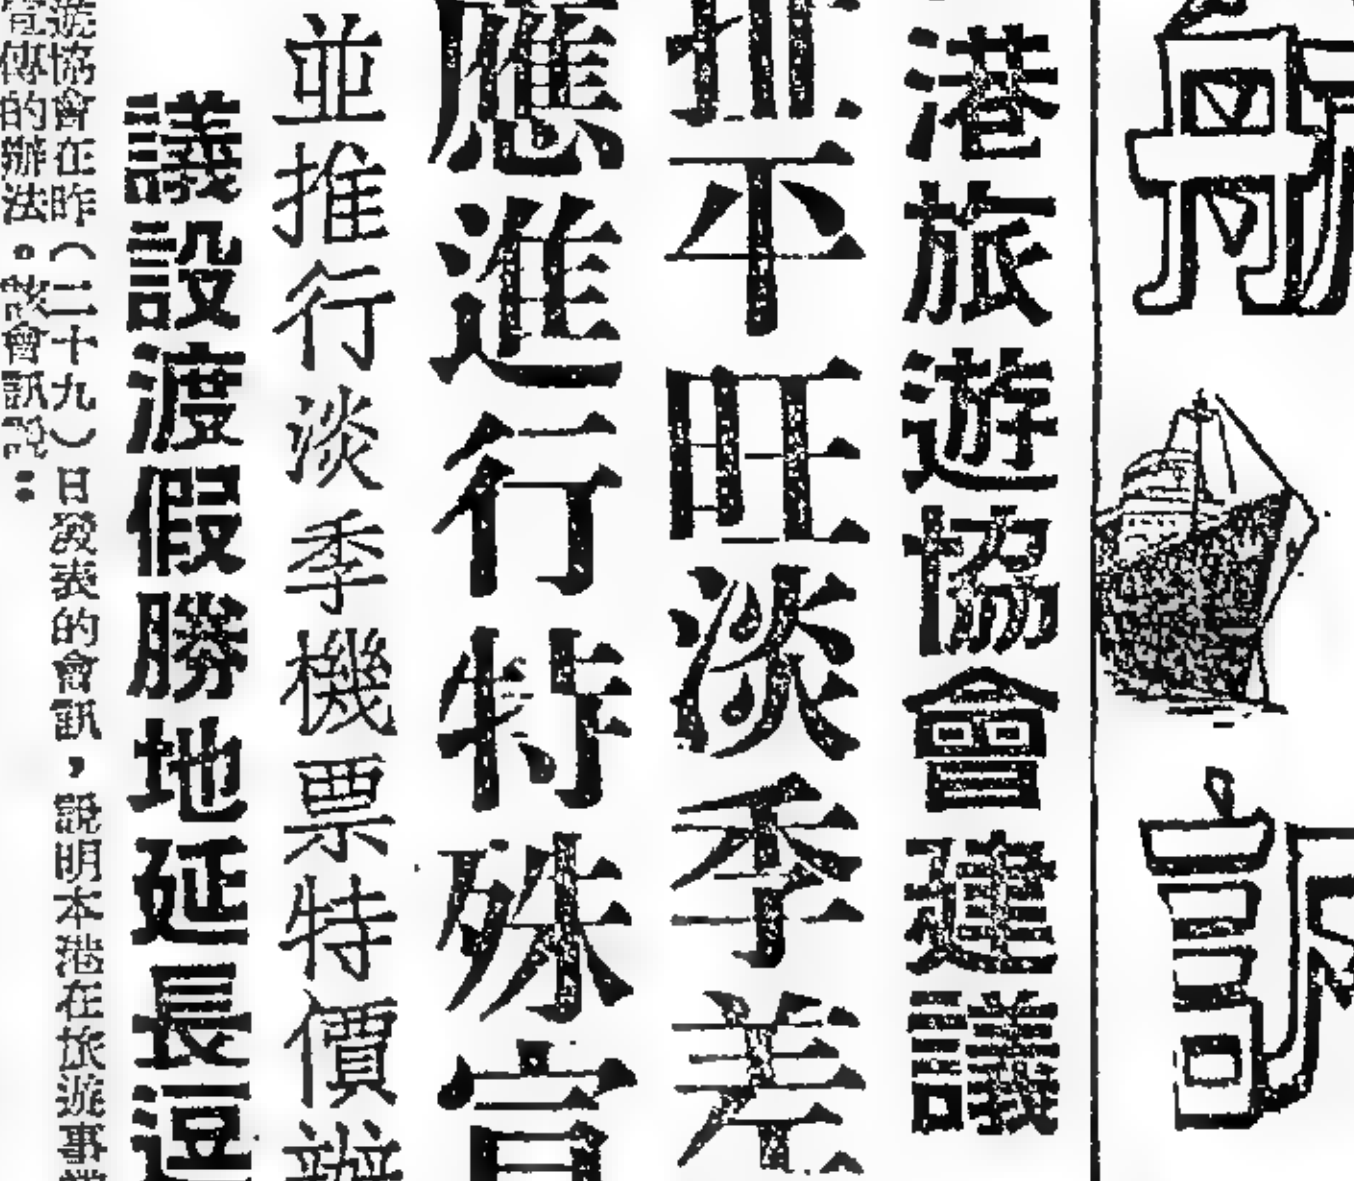 舟
訊
港旅遊協會建議
扯平旺淡季差
應進行特殊宣
並推行淡季機票特價辦
議設渡假勝地延長逗
遊協會在是（二十九）日發表的會訊，說明本港在旅遊事業
宣傳的辦法。該會訊說：